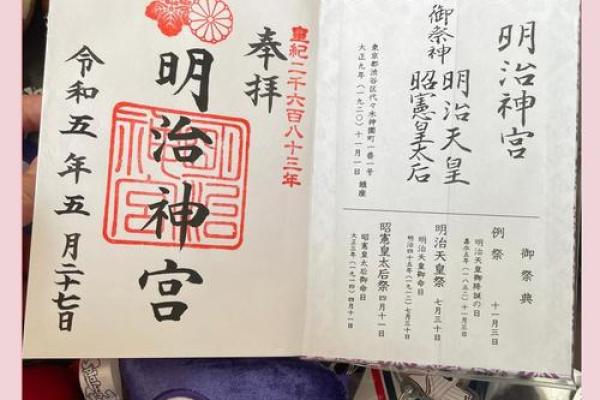 明治神宮
御祭神
明治天皇
昭憲皇太后
東京都渋谷区代々木神園町一番一号
大正九年(一九二〇)十一月一日 鎮座
御祭典
例祭 十一月三日
明治天皇御降誕の日
嘉永五年(一八五二)十一月三日
明治天皇祭 七月三十日
明治天皇御命日
明治四十五年(一九一二)七月三十日
昭憲皇太后祭 四月十一日
昭憲皇太后御命日
大正三年(一九一四)四月十一日
皇紀二千六百八十三年
奉拝
明治神宮
明治神宮
令和五年五月二十七日